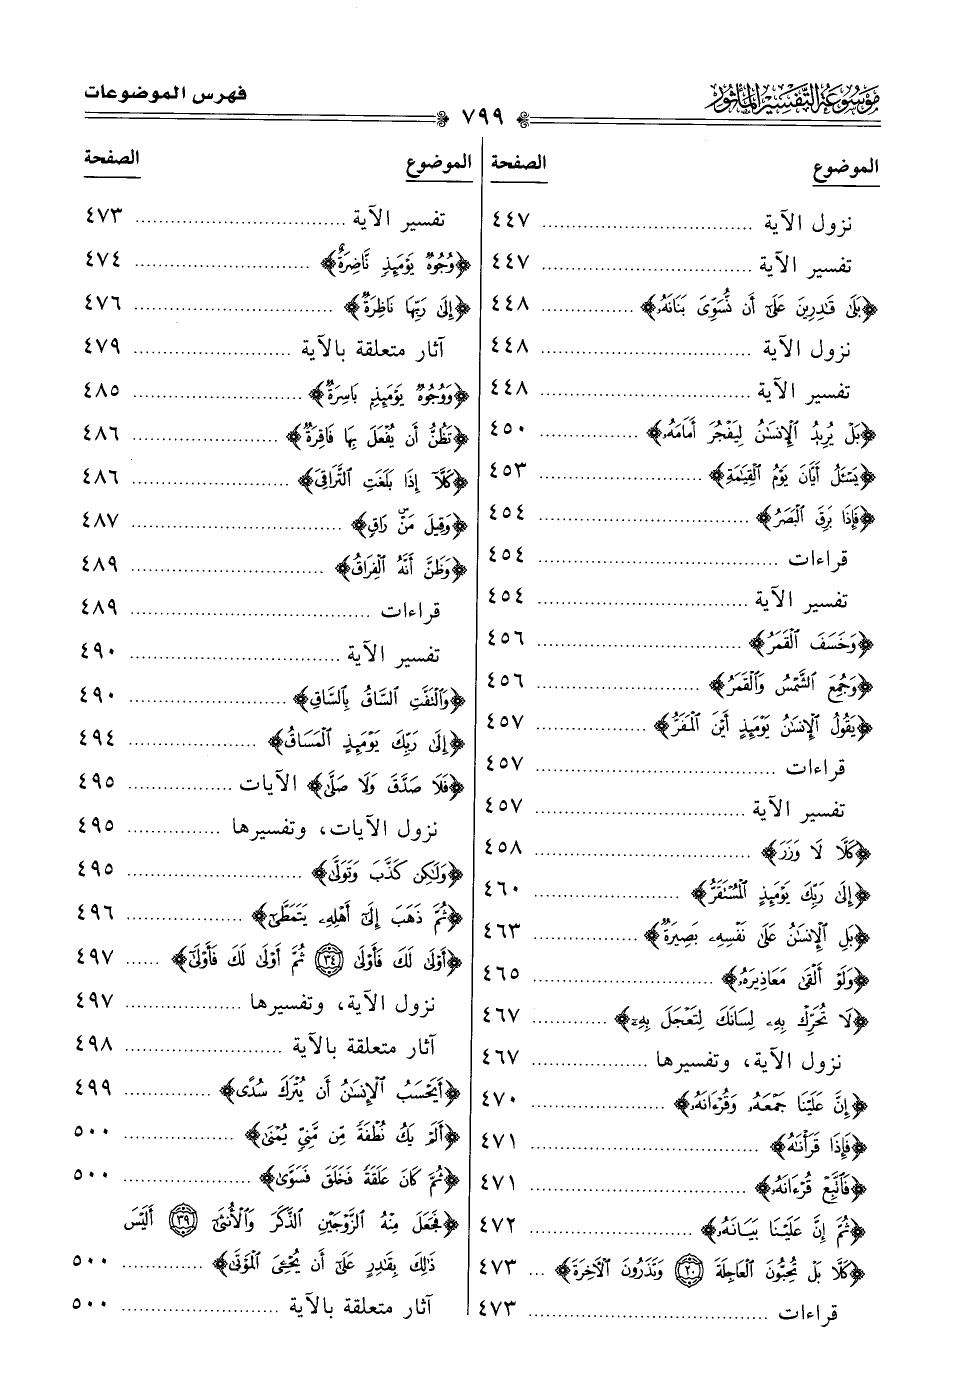 موسوعة التفسير المأثور
فهرس الموضوعات
٧٩٩
الموضوع الصفحة
نزول الآية ........ ٤٤٧
تفسير الآية ........ ٤٤٧
﴿بَلَىٰ قَٰدِرِينَ عَلَىٰٓ أَن نُّسَوِّىَ بَنَانَهُۥ﴾ ........ ٤٤٨
نزول الآية ........ ٤٤٨
تفسير الآية ........ ٤٤٨
﴿بَلْ يُرِيدُ ٱلْإِنسَٰنُ لِيَفْجُرَ أَمَامَهُۥ﴾ ........ ٤٥٠
﴿يَسْـَٔلُ أَيَّانَ يَوْمُ ٱلْقِيَٰمَةِ﴾ ........ ٤٥٣
﴿فَإِذَا بَرِقَ ٱلْبَصَرُ﴾ ........ ٤٥٤
قراءات ........ ٤٥٤
تفسير الآية ........ ٤٥٤
﴿وَخَسَفَ ٱلْقَمَرُ﴾ ........ ٤٥٦
﴿وَجُمِعَ ٱلشَّمْسُ وَٱلْقَمَرُ﴾ ........ ٤٥٦
﴿يَقُولُ ٱلْإِنسَٰنُ يَوْمَئِذٍ أَيْنَ ٱلْمَفَرُّ﴾ ........ ٤٥٧
قراءات ........ ٤٥٧
تفسير الآية ........ ٤٥٧
﴿كَلَّا لَا وَزَرَ﴾ ........ ٤٥٨
﴿إِلَىٰ رَبِّكَ يَوْمَئِذٍ ٱلْمُسْتَقَرُّ﴾ ........ ٤٦٠
﴿بَلِ ٱلْإِنسَٰنُ عَلَىٰ نَفْسِهِۦ بَصِيرَةٌ﴾ ........ ٤٦٣
﴿وَلَوْ أَلْقَىٰ مَعَاذِيرَهُۥ﴾ ........ ٤٦٥
﴿لَا تُحَرِّكْ بِهِۦ لِسَانَكَ لِتَعْجَلَ بِهِۦٓ﴾ ........ ٤٦٧
نزول الآية، وتفسيرها ........ ٤٦٧
﴿إِنَّ عَلَيْنَا جَمْعَهُۥ وَقُرْءَانَهُۥ﴾ ........ ٤٧٠
﴿فَإِذَا قَرَأْنَٰهُ﴾ ........ ٤٧١
﴿فَٱتَّبِعْ قُرْءَانَهُۥ﴾ ........ ٤٧١
﴿ثُمَّ إِنَّ عَلَيْنَا بَيَانَهُۥ﴾ ........ ٤٧٢
﴿كَلَّا بَلْ تُحِبُّونَ ٱلْعَاجِلَةَ ٢٠ وَتَذَرُونَ ٱلْءَاخِرَةَ﴾ ... ٤٧٣
قراءات ........ ٤٧٣
الموضوع الصفحة
تفسير الآية ........ ٤٧٣
﴿وُجُوهٌ يَوْمَئِذٍ نَّاضِرَةٌ﴾ ........ ٤٧٤
﴿إِلَىٰ رَبِّهَا نَاظِرَةٌ﴾ ........ ٤٧٦
آثار متعلقة بالآية ........ ٤٧٩
﴿وَوُجُوهٌ يَوْمَئِذٍۭ بَاسِرَةٌ﴾ ........ ٤٨٥
﴿تَظُنُّ أَن يُفْعَلَ بِهَا فَاقِرَةٌ﴾ ........ ٤٨٦
﴿كَلَّآ إِذَا بَلَغَتِ ٱلتَّرَاقِىَ﴾ ........ ٤٨٦
﴿وَقِيلَ مَنْۜ رَاقٍ﴾ ........ ٤٨٧
﴿وَظَنَّ أَنَّهُ ٱلْفِرَاقُ﴾ ........ ٤٨٩
قراءات ........ ٤٨٩
تفسير الآية ........ ٤٩٠
﴿وَٱلْتَفَّتِ ٱلسَّاقُ بِٱلسَّاقِ﴾ ........ ٤٩٠
﴿إِلَىٰ رَبِّكَ يَوْمَئِذٍ ٱلْمَسَاقُ﴾ ........ ٤٩٤
﴿فَلَا صَدَّقَ وَلَا صَلَّىٰ﴾ الآيات ........ ٤٩٥
نزول الآيات، وتفسيرها ........ ٤٩٥
﴿وَلَٰكِن كَذَّبَ وَتَوَلَّىٰ﴾ ........ ٤٩٥
﴿ثُمَّ ذَهَبَ إِلَىٰٓ أَهْلِهِۦ يَتَمَطَّىٰٓ﴾ ........ ٤٩٦
﴿أَوْلَىٰ لَكَ فَأَوْلَىٰ ٣٤ ثُمَّ أَوْلَىٰ لَكَ فَأَوْلَىٰٓ﴾ ...... ٤٩٧
نزول الآية، وتفسيرها ........ ٤٩٧
آثار متعلقة بالآية ........ ٤٩٨
﴿أَيَحْسَبُ ٱلْإِنسَٰنُ أَن يُتْرَكَ سُدًى﴾ ........ ٤٩٩
﴿أَلَمْ يَكُ نُطْفَةً مِّن مَّنِىٍّ يُمْنَىٰ﴾ ........ ٥٠٠
﴿ثُمَّ كَانَ عَلَقَةً فَخَلَقَ فَسَوَّىٰ﴾ ........ ٥٠٠
﴿فَجَعَلَ مِنْهُ ٱلزَّوْجَيْنِ ٱلذَّكَرَ وَٱلْأُنثَىٰٓ ٣٩ أَلَيْسَ
ذَٰلِكَ بِقَٰدِرٍ عَلَىٰٓ أَن يُحْـِۧىَ ٱلْمَوْتَىٰ﴾ ........ ٥٠٠
آثار متعلقة بالآية ........ ٥٠٠